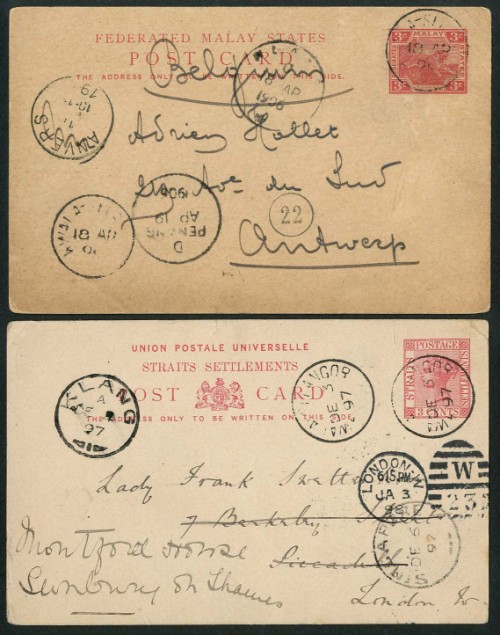 FEDERATED MALAY STATES
POST CARD
THE ADDRESS ONLY TO BE WRITTEN ON THIS SIDE.
3c 3c
3c 3c
18 AP
1906
ANVERS
Adrien Hallet
Ave du Sud
Antwerp
22
D
PENANG
AP
19
1906
18 AP
UNION POSTALE UNIVERSELLE
STRAITS SETTLEMENTS
POST CARD
THE ADDRESS ONLY TO BE WRITTEN ON THIS SIDE
STRAITS POSTAGE SETTLEMENTS
3 CENTS
KLANG
A
97
DE 3
97
Lady Frank Swettenham
7 Berkeley
Piccadilly
London W.
Montford House
Sunbury on Thames
LONDON.W
6.15.PM
JA 3
98
W
23
DE 6
97